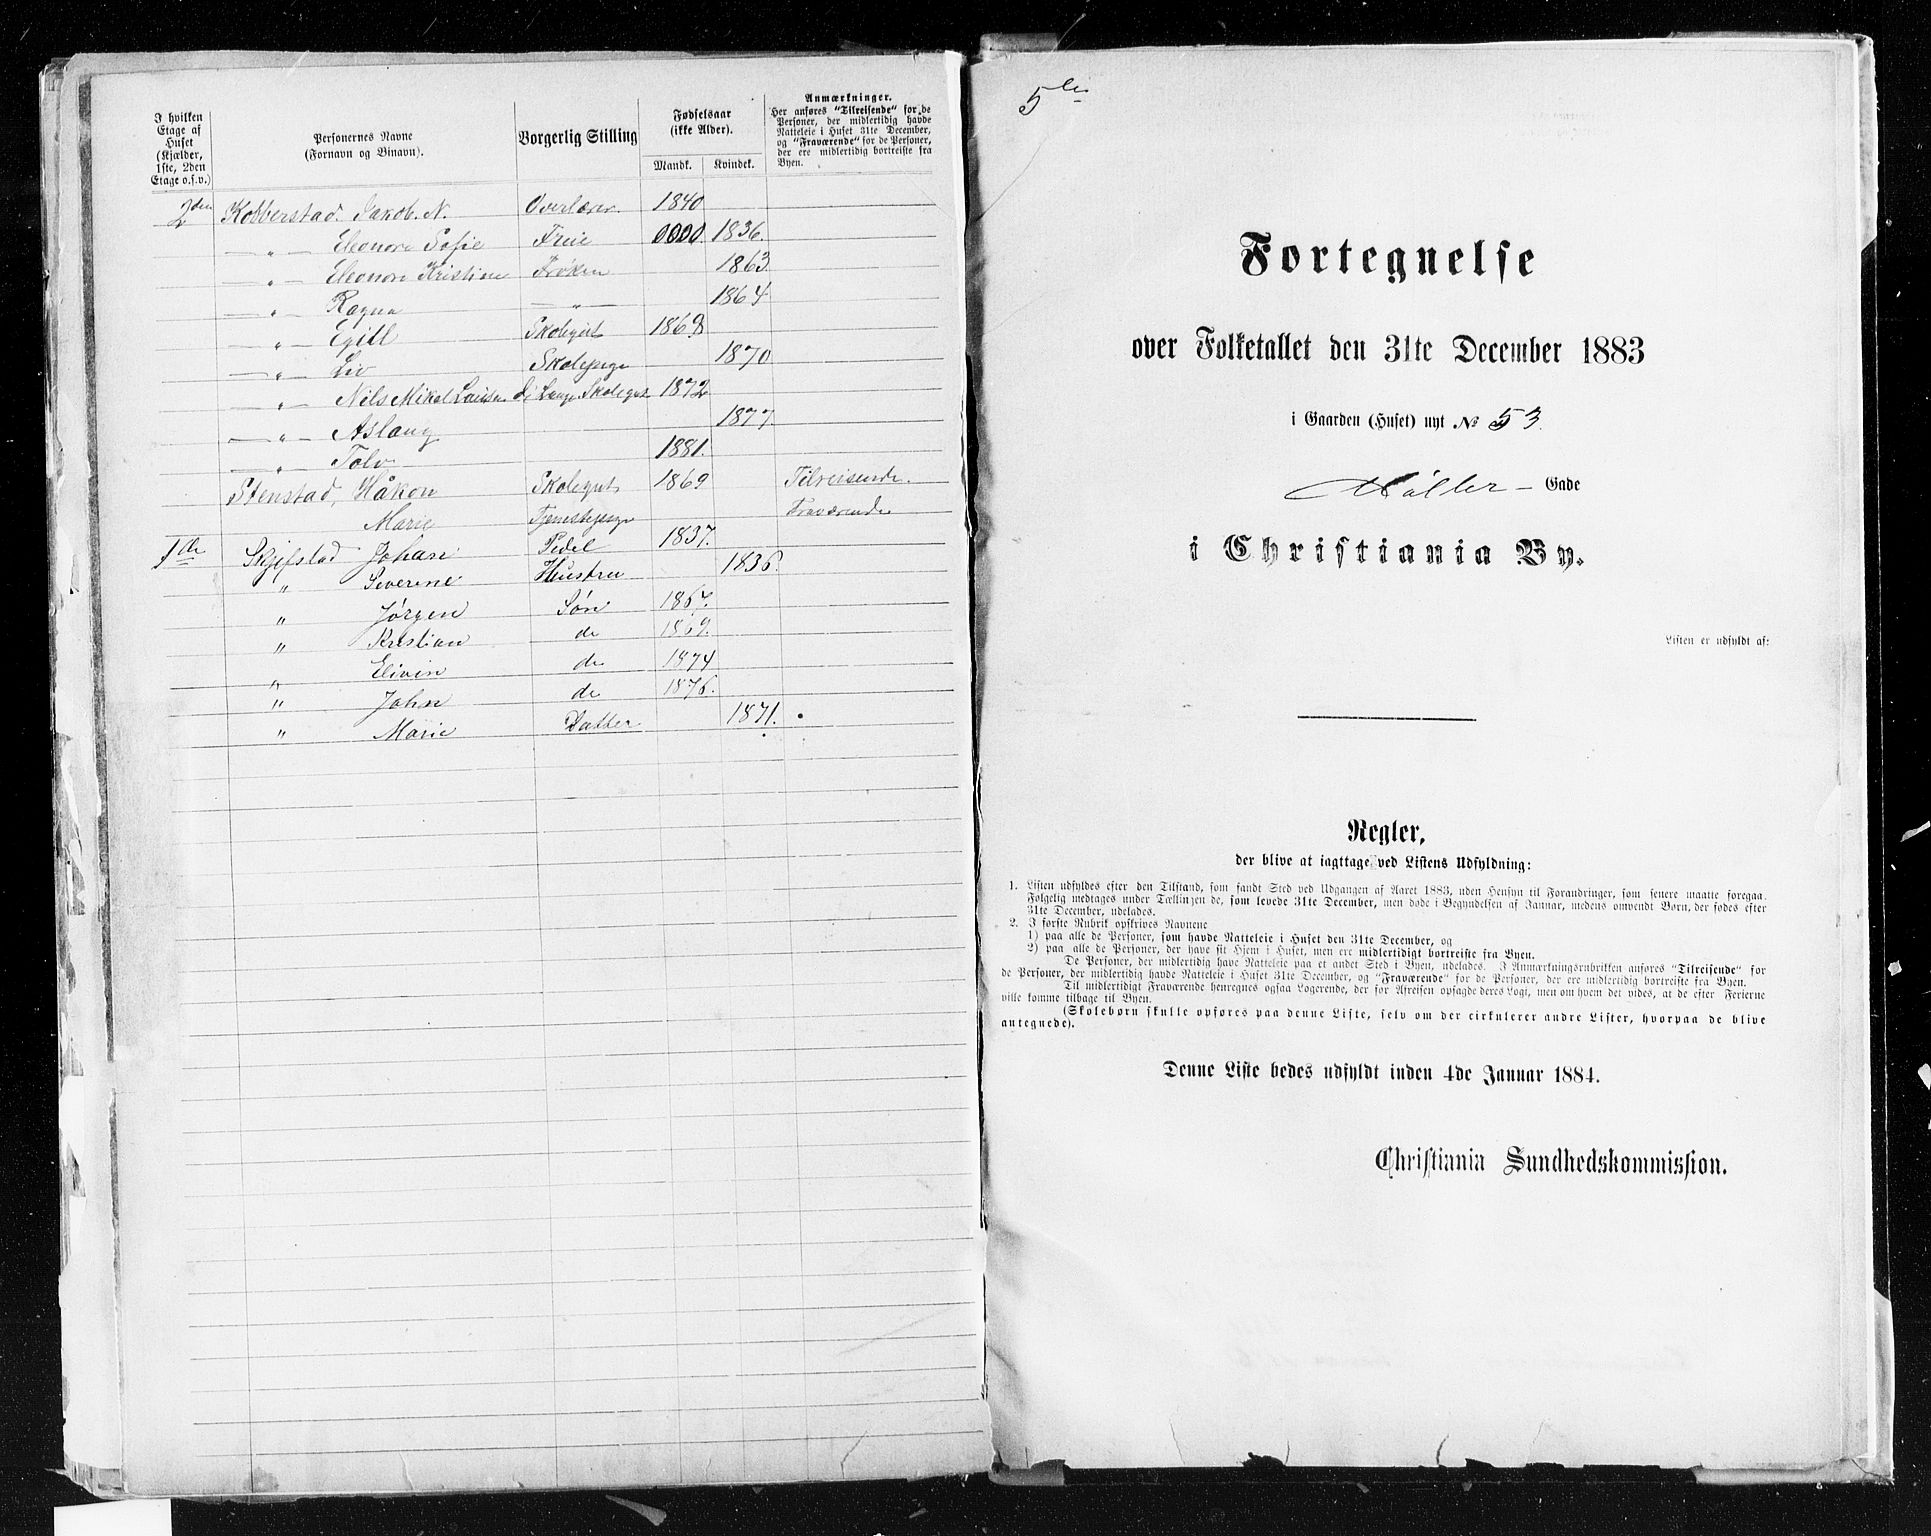 I hvilken Etage af Huset (Kjælder, 1ste, 2den Etage o.s.v.)
Personernes Navne (Fornavn og Binavn).
Borgerlig Stilling
Fødselsaar (ikke Alder).
Mandk. Kvindek.
Anmærkninger.
Her anføres "Tilreisende" for de
Personer, der midlertidig havde
Natteleie i Huset 31te December,
og "Fraværende" for de Personer,
der ere midlertidig bortreiste fra
Byen.
2den Kobberstad. Jakob. N. Overlærer. 1840
— „ — Eleonora Sofie Frue 0000. 1836.
— „ — Eleonora Kristine Frøken 1863
— „ — Ragna — „ — 1864
— „ — Egill Skolegut 1868
— „ — Liv Skolepige 1870
— „ — Nils Mikal Skolegut 1872
— „ — Aslaug 1877.
— „ — Tolv 1881.
Stenstad, Håkon Skolegut 1869 Tilreisende.
Marie Tjenestepige Fraværende
1de Skjefstad Johan Pedel 1837.
„ Severine Hustru 1836.
„ Jørgen Søn 1867.
„ Kristian do 1869.
„ Elivin do 1874
„ John do 1876.
„ Marie Datter 1871.
5
Fortegnelse
over Folketallet den 31te December 1883
i Gaarden (Huset) nyt № 53.
Møller – Gade
i Christiania By.
Listen er udfyldt af:
Regler,
der blive at iagttage ved Listens Udfyldning:
1. Listen udfyldes efter den Tilstand, som fandt Sted ved Udgangen af Aaret 1883, uden Hensyn til Forandringer, som senere maatte foregaa.
Følgelig medtages under Tællingen de, som levede 31te December, men døde i Begyndelsen af Januar, medens omvendt Børn, der fødes efter
31te December, udelades.
2. I første Rubrik opskrives Navnene
1) paa alle de Personer, som havde Natteleie i Huset den 31te December, og
2) paa alle de Personer, der have sit Hjem i Huset, men ere midlertidigt bortreiste fra Byen.
De Personer, der midlertidig have Natteleie paa et andet Sted i Byen, udelades. I Anmærkningsrubrikken anføres "Tilreisende" for
de Personer, der midlertidig havde Natteleie i Huset 31te December, og "Fraværende" for de Personer, der ere midlertidig bortreiste fra Byen.
Til midlertidigt Fraværende henregnes ogsaa Logerende, der før Afreisen opsagde deres Logi, men om hvem det vides, at de efter Ferierne
ville komme tilbage til Byen.
(Skolebørn skulle opføres paa denne Liste, selv om der cirkulerer andre Lister, hvorpaa de blive
antegnede).
Denne Liste bedes udfyldt inden 4de Januar 1884.
Christiania Sundhedskommission.